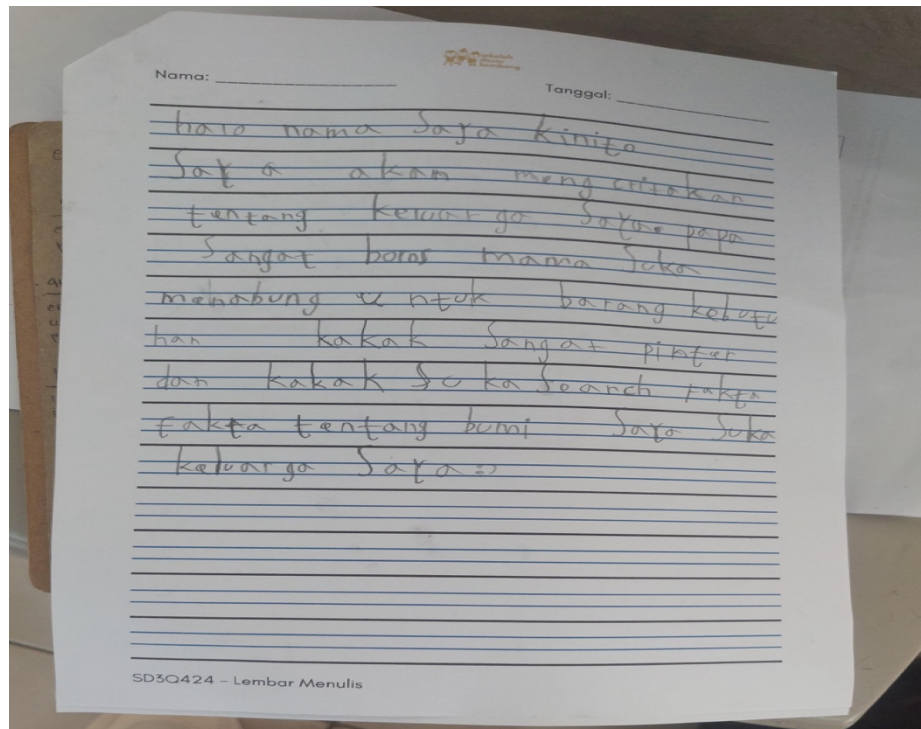 Nama:
Tanggal:
halo nama saya kinito
Saya akan mengcritakan
tentang keluarga saya. papa
sangat boros mama suka
menabung untuk barang kebutu
han kakak sangat pinter
dan kakak suka search fakta
fakta tentang bumi saya suka
keluarga saya =)
SD3Q424 – Lembar Menulis